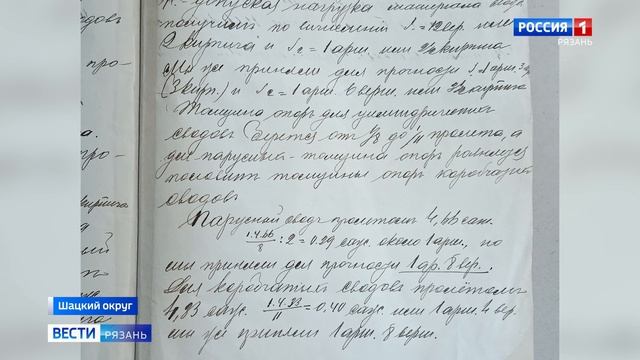 РОССИЯ 1
РЯЗАНЬ
допуская нагрузка матерiала
получимъ по вычисленiи S = 12 вер. или
2 кирпича и Sc = 1 арш. или 2½ кирпича
Мы же приняли для прочности S = 1 арш. 3
(3 кирп.) и Sc = 1 арш. 6 верш. или 3½ кирпича
Толщина опоръ для цилиндрическихъ
сводовъ берется отъ 1/8 до 1/11 пролета, а
для паруснаго толщина опоръ равняется
половинѣ толщины опоръ коробчатыхъ
сводовъ
Парусный сводъ пролетомъ 4,66 саж.
1.4.66/8 : 2 = 0.29 саж. около 1 арш., но
мы приняли для прочности 1 ар. 8 вер.
Для коробчатыхъ сводовъ пролётомъ
4,33 саж. 1.4.33/11 = 0.40 саж. или 1 арш. 4 вер.
мы же приняли 1 арш. 8 верш.
довъ
про-
а.
про-
Шацкий округ
ВЕСТИ РЯЗАНЬ